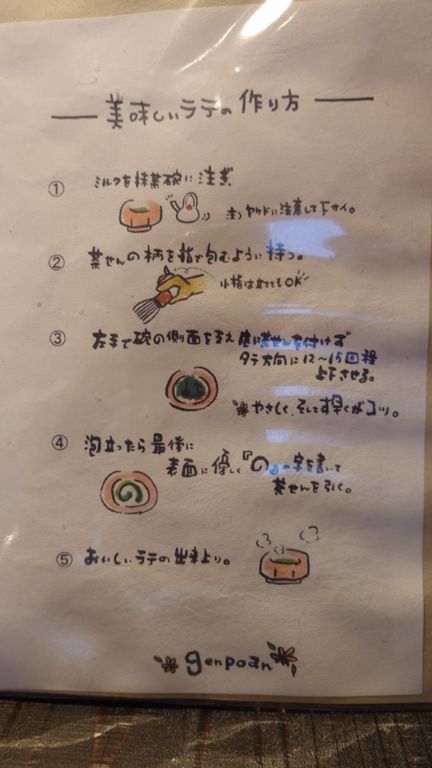 美味しいラテの作り方
① ミルクを抹茶碗に注ぎ
注）ヤケドに注意して下さい。
② 茶せんの柄を指で包むように持つ。
小指は立ててもOK
③ 左手で碗の側面を支え 底に茶せんを付けず
タテ方向に12～15回程
上下させる。
やさしく、そして早くがコツ。
④ 泡立ったら最後に
表面に優しく『の』の字を書いて
茶せんを引く。
⑤ おいしいラテの出来上り。
genpoan